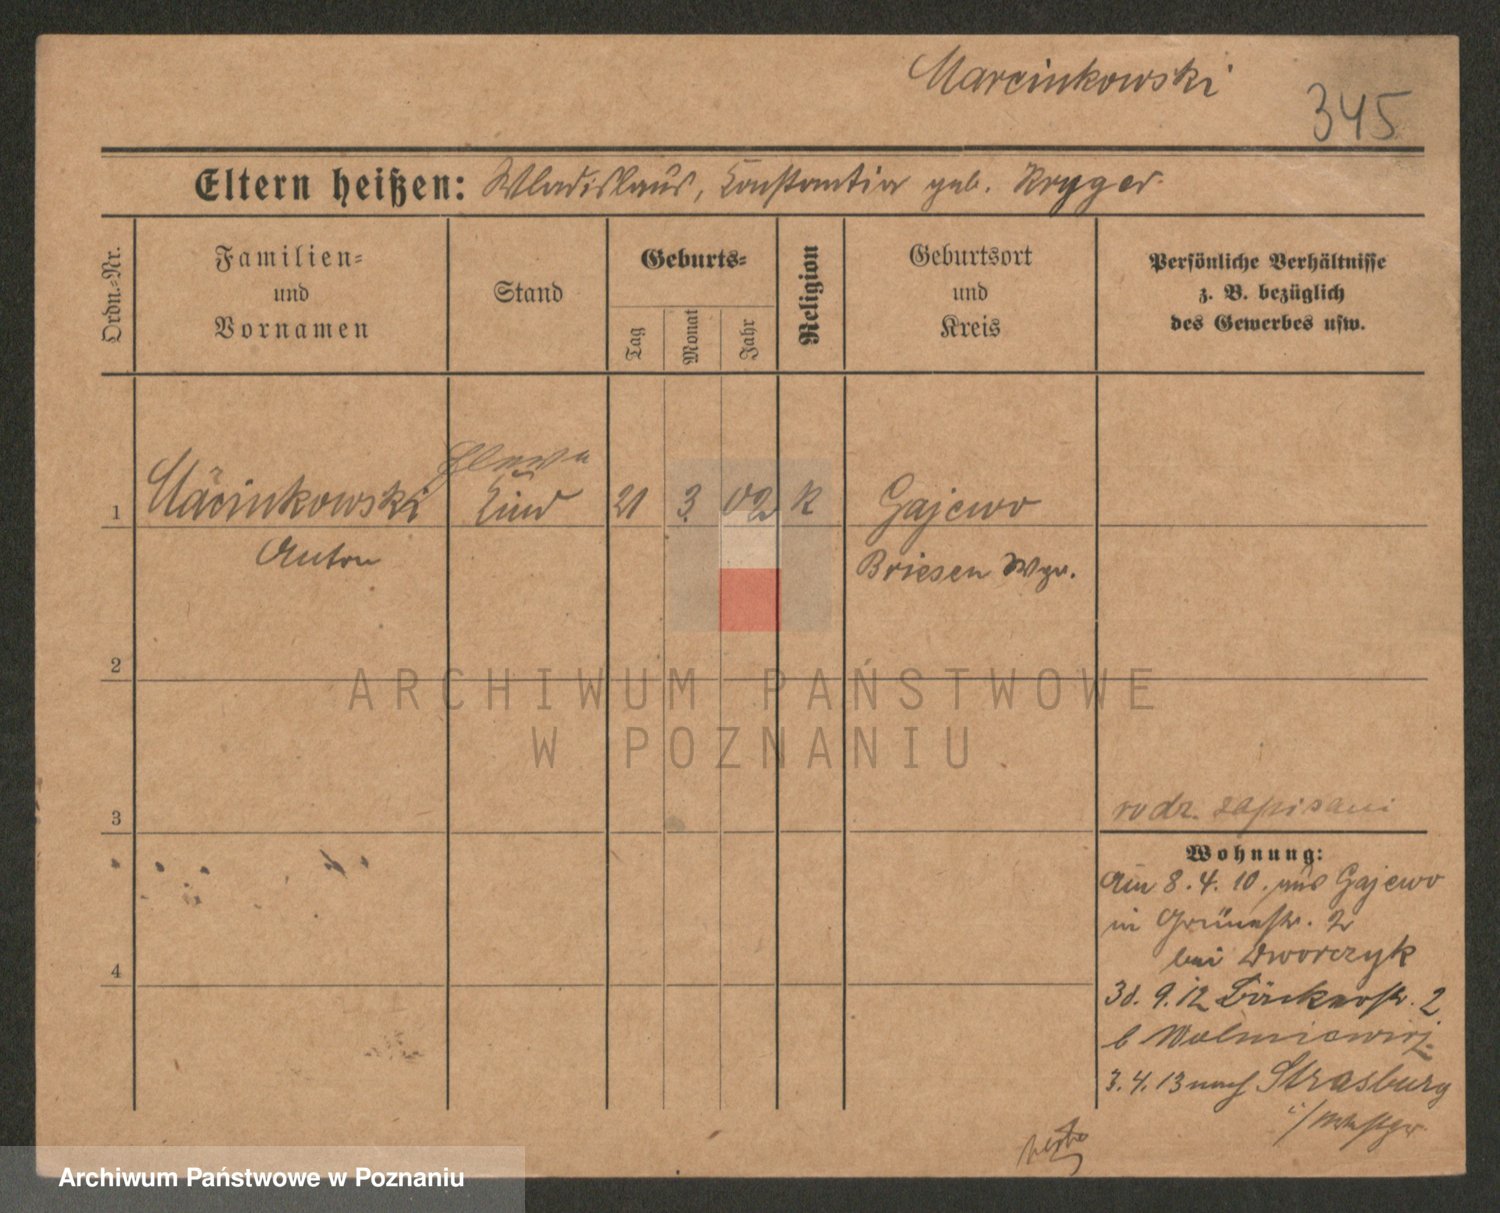 Marcinkowski
345
Eltern heißen: Wladislaus, Konstantia geb. Kryger
Ordn.-Nr.
Familien-
und
Vornamen
Stand
Geburts-
Tag
Monat
Jahr
Religion
Geburtsort
und
Kreis
Persönliche Verhältnisse
z. B. bezüglich
des Gewerbes usw.
1 Marcinkowski Kind 21 3. 02 K Gajewo
Anton Briesen Wpr.
2
ARCHIWUM PAŃSTWOWE
W POZNANIU
rodz. zapisani
3
Wohnung:
Am 8.4.10. aus Gajewo
in Grünestr. 2
bei Dworczyk
4
30.9.12 Bäckerstr. 2
b
3.4.13 nach Strasburg
i/Westpr.
Archiwum Państwowe w Poznaniu